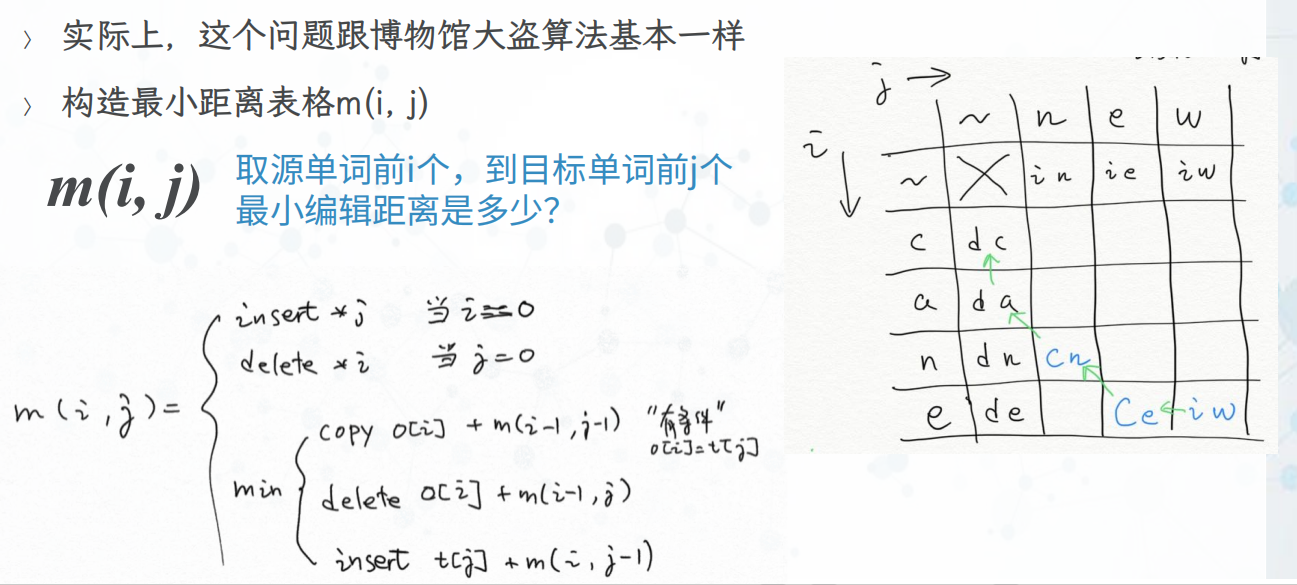 › 实际上，这个问题跟博物馆大盗算法基本一样
› 构造最小距离表格m(i, j)
m(i, j) 取源单词前i个，到目标单词前j个
最小编辑距离是多少？
m(i,j)=
insert *j 当 i==0
delete *i 当 j=0
min
copy o[i] + m(i-1,j-1) "有条件"
o[i]=t[j]
delete o[i] + m(i-1,j)
insert t[j] + m(i,j-1)
j →
i ↓
~ n e w
~ in ie iw
c dc
a da
n dn Cn
e de Ce iw